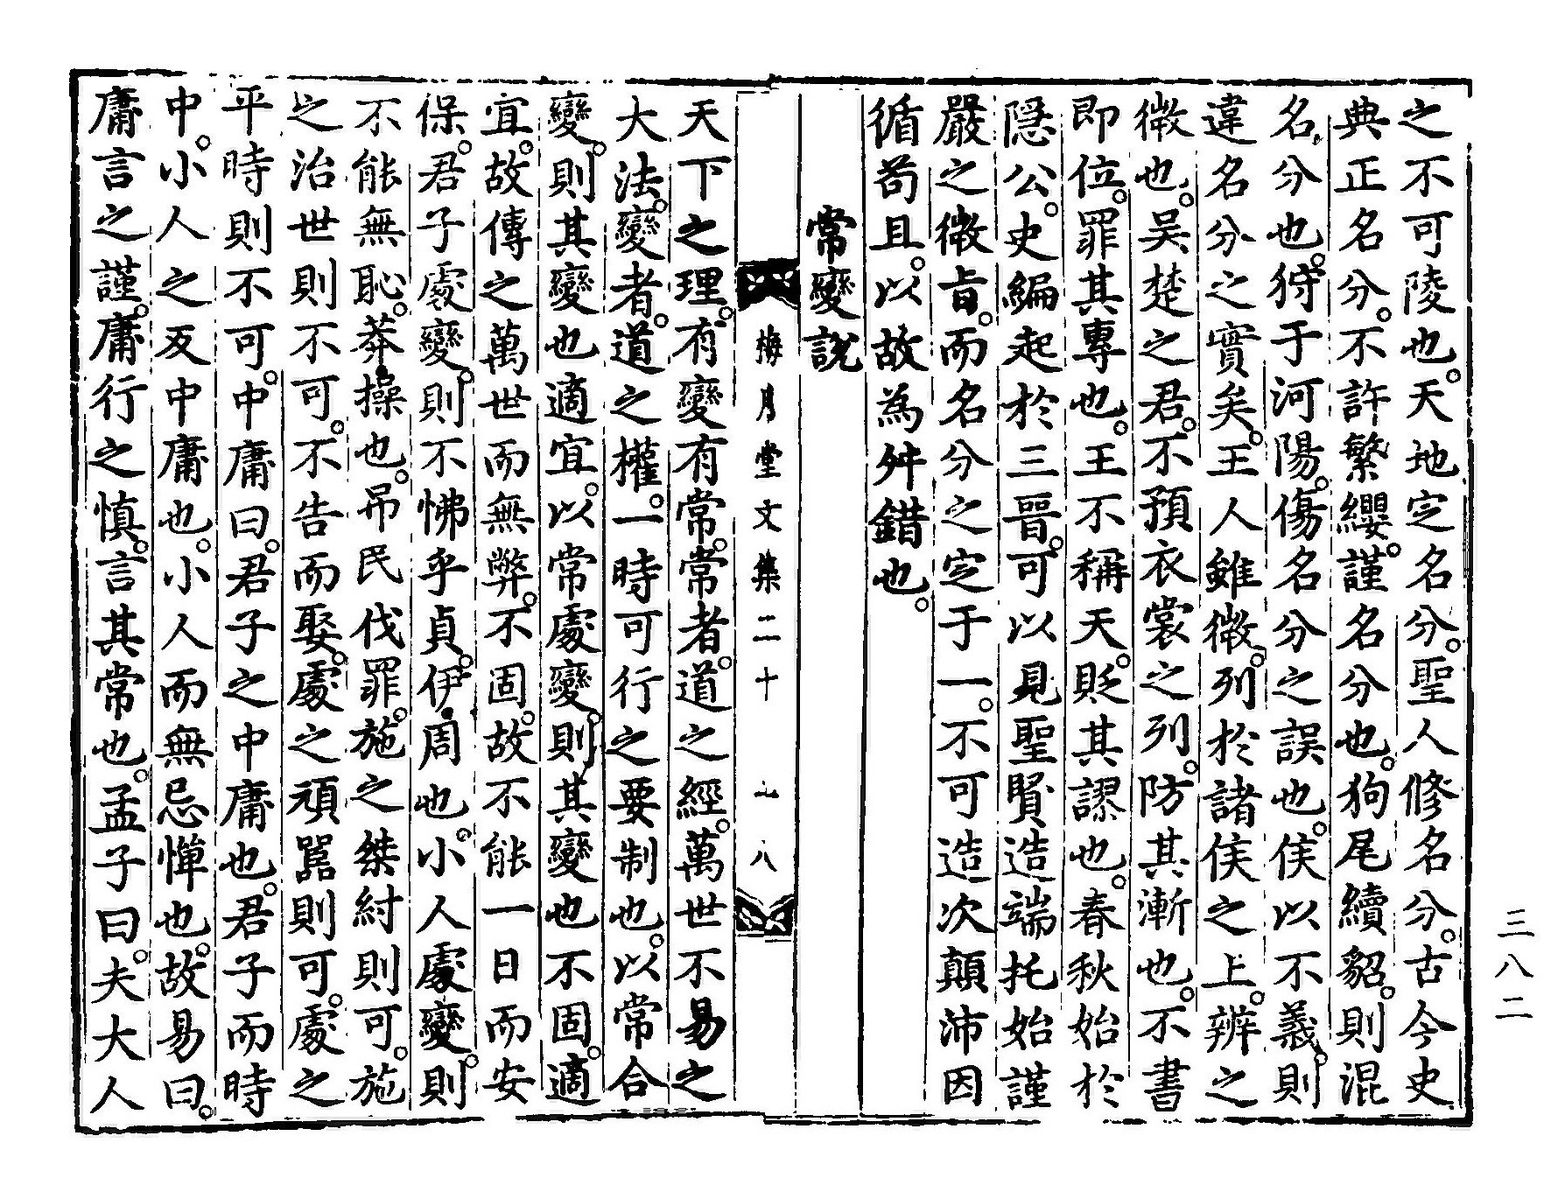 之不可陵也。天地定名分。聖人修名分。古今史
典正名分。不許繁纓。謹名分也。狗尾續貂。則混
名分也。狩于河陽。傷名分之誤也。侯以不義。則
違名分之實矣。王人雖微。列於諸侯之上。辨之
微也。吴楚之君。不預衣裳之列。防其漸也。不書
即位。罪其專也。王不稱天。貶其謬也。春秋始於
隱公。史編起於三晉。可以見聖賢造端托始謹
嚴之微旨。而名分之定于一。不可造次顛沛因
循苟且。以故為舛錯也。
常變說
梅月堂文集二十
七八
天下之理。有變有常。常者。道之經。萬世不易之
大法。變者。道之權。一時可行之要制也。以常合
變。則其變也適宜。以常處變。則其變也不固。適
宜。故傳之萬世而無弊。不固。故不能一日而安
保。君子處變。則不怫乎貞。伊周也。小人處變。則
不能無恥。莽操也。吊民伐罪。施之桀紂則可。施
之治世則不可。不告而娶。處之頑嚚則可。處之
平時則不可。中庸曰。君子之中庸也。君子而時
中。小人之反中庸也。小人而無忌憚也。故易曰。
庸言之謹。庸行之慎。言其常也。孟子曰。夫大人
三八二